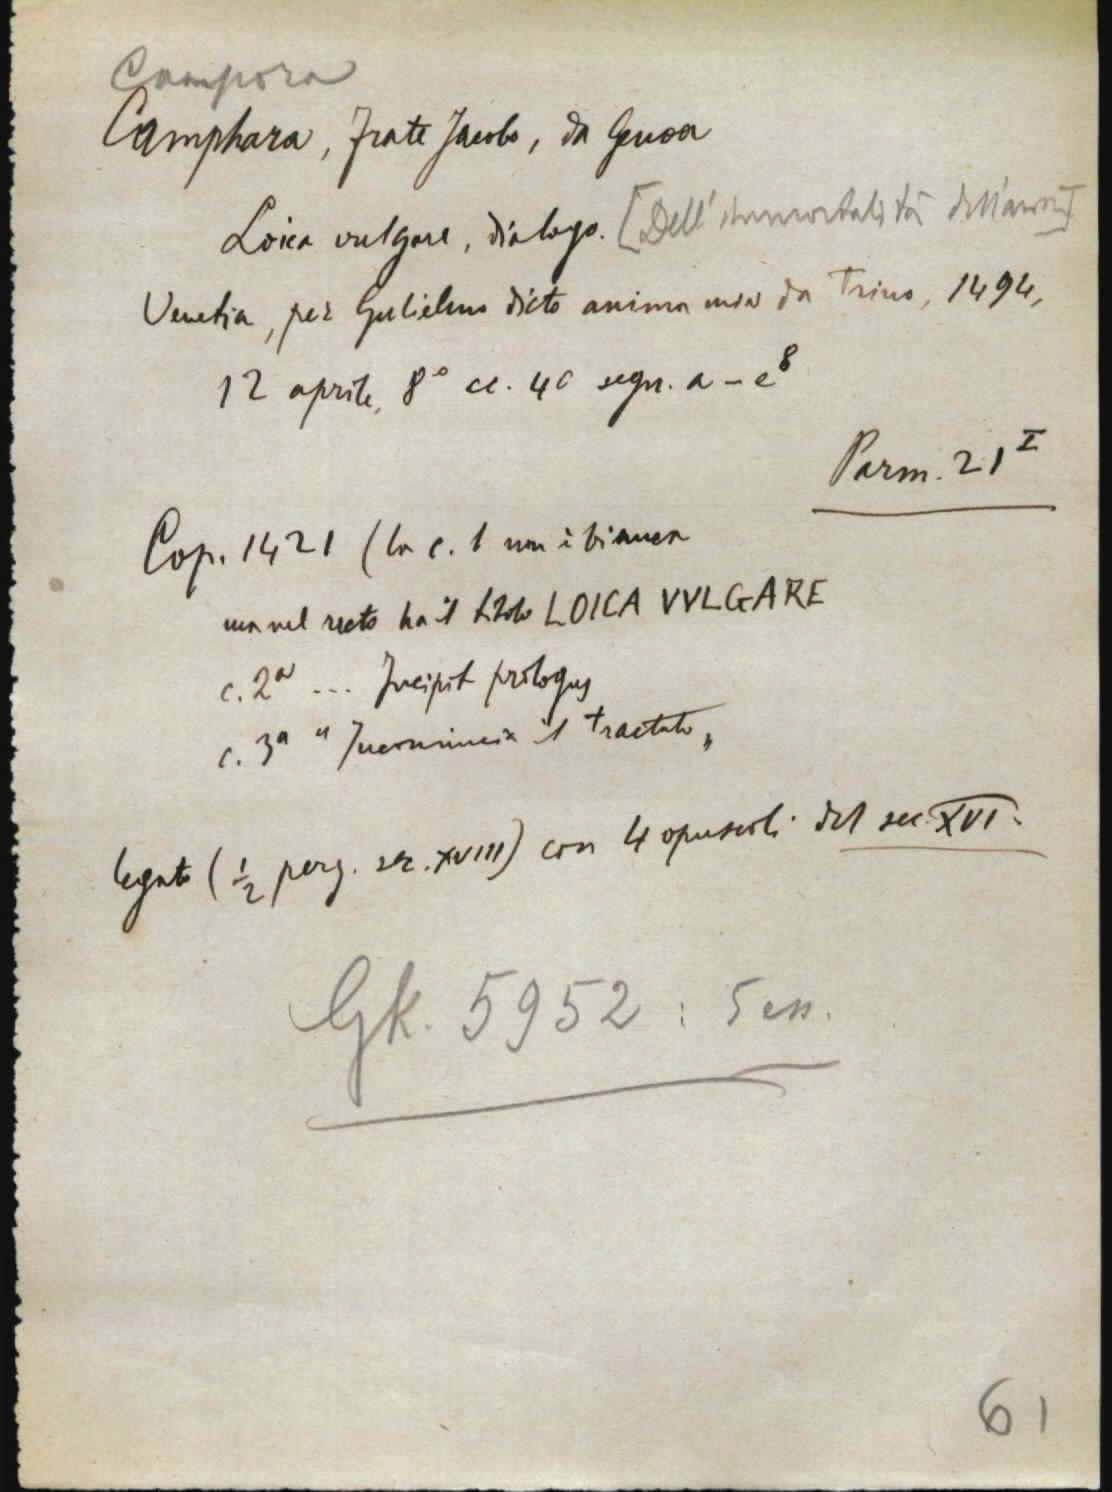 Campora
Camphara, Frate Jacobo, da Genoa
Loica vulgare, dialogo. [Dell'immortalità dell'anima]
Venetia, per Gulielmo dicto anima mia da Trino, 1494,
12 aprile, 8° cc. 40 segn. a-e⁸
Parm. 21ᴵ
Cop. 1421 (la c. 1 non è bianca
ma nel recto ha il titolo LOICA VVLGARE
c. 2ᵃ ... Incipit prologus
c. 3ᵃ "Incomincia il tractato„
legato (½ perg. sec. XVIII) con 4 opuscoli del sec. XVI.
Gk. 5952 : 5 es.
61